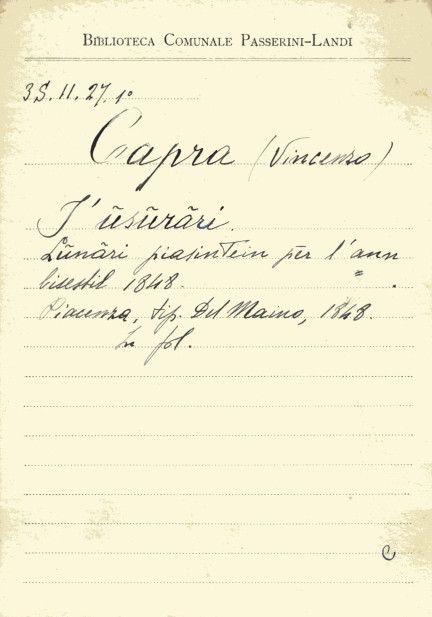 BIBLIOTECA COMUNALE PASSERINI-LANDI
3S. 11. 27. 1º
Capra (Vincenzo)
J' üsürāri.
Lünāri piasintein pēr l'ann
bisestil 1848.
Piacenza, tip. Del Maino, 1848.
In fol.
C